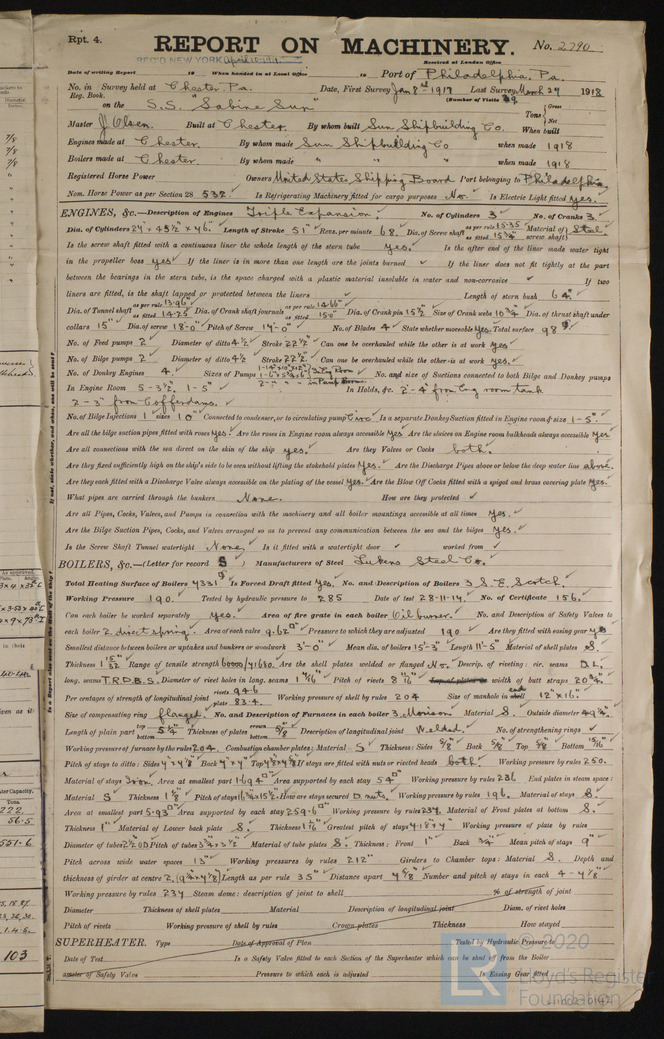 Rpt. 4.
REPORT ON MACHINERY.
No. 2790
REC'D NEW YORK April 10 1918
Received at London Office
Date of writing Report 19 When handed in at Local Office 19 Port of Philadelphia, Pa.
No. in Survey held at Chester, Pa. Date, First Survey Jan 8th 1917 Last Survey March 27 1918
Reg. Book. (Number of Visits 49
on the S.S. "Sabine Sun" Tons Gross Net
Master J. Olsen. Built at Chester. By whom built Sun Shipbuilding Co. When built
Engines made at Chester. By whom made Sun Shipbuilding Co when made 1918
Boilers made at Chester. By whom made " " " when made 1918
Registered Horse Power Owners United States Shipping Board Port belonging to Philadelphia
Nom. Horse Power as per Section 28 532. Is Refrigerating Machinery fitted for cargo purposes No. Is Electric Light fitted yes.
ENGINES, &c.—Description of Engines Triple Expansion No. of Cylinders 3 No. of Cranks 3
Dia. of Cylinders Length of Stroke 51" Revs. per minute 68. Dia. of Screw shaft as per rule 15.35 as fitted 15 3/4 Material of screw shaft) Steel
Is the screw shaft fitted with a continuous liner the whole length of the stern tube yes. Is the after end of the liner made water tight
in the propeller boss yes If the liner is in more than one length are the joints burned ✓ If the liner does not fit tightly at the part
between the bearings in the stern tube, is the space charged with a plastic material insoluble in water and non-corrosive ✓ If two
liners are fitted, is the shaft lapped or protected between the liners ✓ Length of stern bush 64"
Dia. of Tunnel shaft as per rule 13.96" as fitted 14.25 Dia. of Crank shaft journals as per rule 14.66" as fitted 15.0" Dia. of Crank pin 15 1/2 Size of Crank webs 10 3/4 Dia. of thrust shaft under
collars 15" Dia. of screw 18-0" Pitch of Screw 17-0" No. of Blades 4 State whether moveable yes. Total surface 98
No. of Feed pumps 2 Diameter of ditto 4 1/2 Stroke 22 1/2 Can one be overhauled while the other is at work yes
No. of Bilge pumps 2 Diameter of ditto 4 1/2 Stroke 22 1/2 Can one be overhauled while the other is at work yes.
No. of Donkey Engines 4. Sizes of Pumps No. and size of Suctions connected to both Bilge and Donkey pumps
In Engine Room 5-3 1/2, 1-5" In Holds, &c. 2-4" from Eng room tank
2-3" from Cofferdams.
No. of Bilge Injections 1 sizes 10" Connected to condenser, or to circulating pump Circ Is a separate Donkey Suction fitted in Engine room & size 1-5".
Are all the bilge suction pipes fitted with roses yes. Are the roses in Engine room always accessible yes Are the sluices on Engine room bulkheads always accessible yes
Are all connections with the sea direct on the skin of the ship yes. Are they Valves or Cocks both.
Are they fixed sufficiently high on the ship's side to be seen without lifting the stokehold plates yes. Are the Discharge Pipes above or below the deep water line above.
Are they each fitted with a Discharge Valve always accessible on the plating of the vessel yes. Are the Blow Off Cocks fitted with a spigot and brass covering plate yes.
What pipes are carried through the bunkers None. How are they protected ✓
Are all Pipes, Cocks, Valves, and Pumps in connection with the machinery and all boiler mountings accessible at all times yes.
Are the Bilge Suction Pipes, Cocks, and Valves arranged so as to prevent any communication between the sea and the bilges yes.
Is the Screw Shaft Tunnel watertight None Is it fitted with a watertight door ✓ worked from ✓
BOILERS, &c.—(Letter for record S) Manufacturers of Steel Lukens Steel Co.
Total Heating Surface of Boilers 7331 Is Forced Draft fitted yes. No. and Description of Boilers 3 S.E. Scotch.
Working Pressure 190. Tested by hydraulic pressure to 285 Date of test 28-11-17. No. of Certificate 156.
Can each boiler be worked separately yes. Area of fire grate in each boiler Oil burner. No. and Description of Safety Valves to
each boiler 2 direct spring. Area of each valve 9.62 Pressure to which they are adjusted 190 Are they fitted with easing gear yes
Smallest distance between boilers or uptakes and bunkers or woodwork 3'-0" Mean dia. of boilers 15'-3" Length 11'-5" Material of shell plates S.
Thickness 1 15/32 Range of tensile strength Are the shell plates welded or flanged No. Descrip. of riveting: cir. seams D.L.
long. seams T.R.D.B.S. Diameter of rivet holes in long. seams Pitch of rivets width of butt straps 20 3/4
Per centages of strength of longitudinal joint rivets 94.6 plate 83.4. Working pressure of shell by rules 204 Size of manhole in end 12"x16".
Size of compensating ring flanged. No. and Description of Furnaces in each boiler 3 Morison Material S. Outside diameter
Length of plain part top bottom Thickness of plates crown bottom 5/8 Description of longitudinal joint Welded. No. of strengthening rings ✓
Working pressure of furnace by the rules 204. Combustion chamber plates: Material S Thickness: Sides 5/8 Back 5/8 Top 5/8 Bottom 15/16
Pitch of stays to ditto: Sides Back Top If stays are fitted with nuts or riveted heads both Working pressure by rules 250.
Material of stays Iron. Area at smallest part 1.694 Area supported by each stay 54 Working pressure by rules 236 End plates in steam space:
Material S Thickness 1 1/8 Pitch of stays How are stays secured D. nuts. Working pressure by rules 196. Material of stays S.
Area at smallest part 5.93 Area supported by each stay 259.6 Working pressure by rules 234. Material of Front plates at bottom S.
Thickness 1" Material of Lower back plate S. Thickness 1 1/16 Greatest pitch of stays Working pressure of plate by rules
Diameter of tubes 2 1/2 OD Pitch of tubes Material of tube plates S. Thickness: Front 1" Back 3/4 Mean pitch of stays 9"
Pitch across wide water spaces 13" Working pressures by rules 212" Girders to Chamber tops: Material S. Depth and
thickness of girder at centre Length as per rule 35" Distance apart Number and pitch of stays in each 4-
Working pressure by rules 234 Steam dome: description of joint to shell % of strength of joint
Diameter Thickness of shell plates Material Description of longitudinal joint Diam. of rivet holes
Pitch of rivets Working pressure of shell by rules Crown plates Thickness How stayed
SUPERHEATER. Type Date of Approval of Plan Tested by Hydraulic Pressure to
Date of Test Is a Safety Valve fitted to each Section of the Superheater which can be shut off from the Boiler
Diameter of Safety Valve Pressure to which each is adjusted Is Easing Gear fitted
© 2020
Lloyd's Register
Foundation